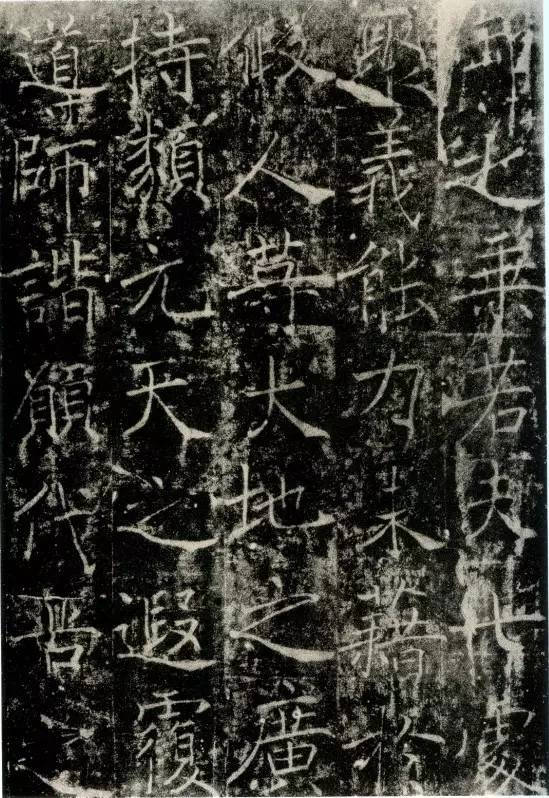 之乘若夫七處
聚義能力未藉於
假人等大地之廣
持類元天之遐覆
道師諧願代